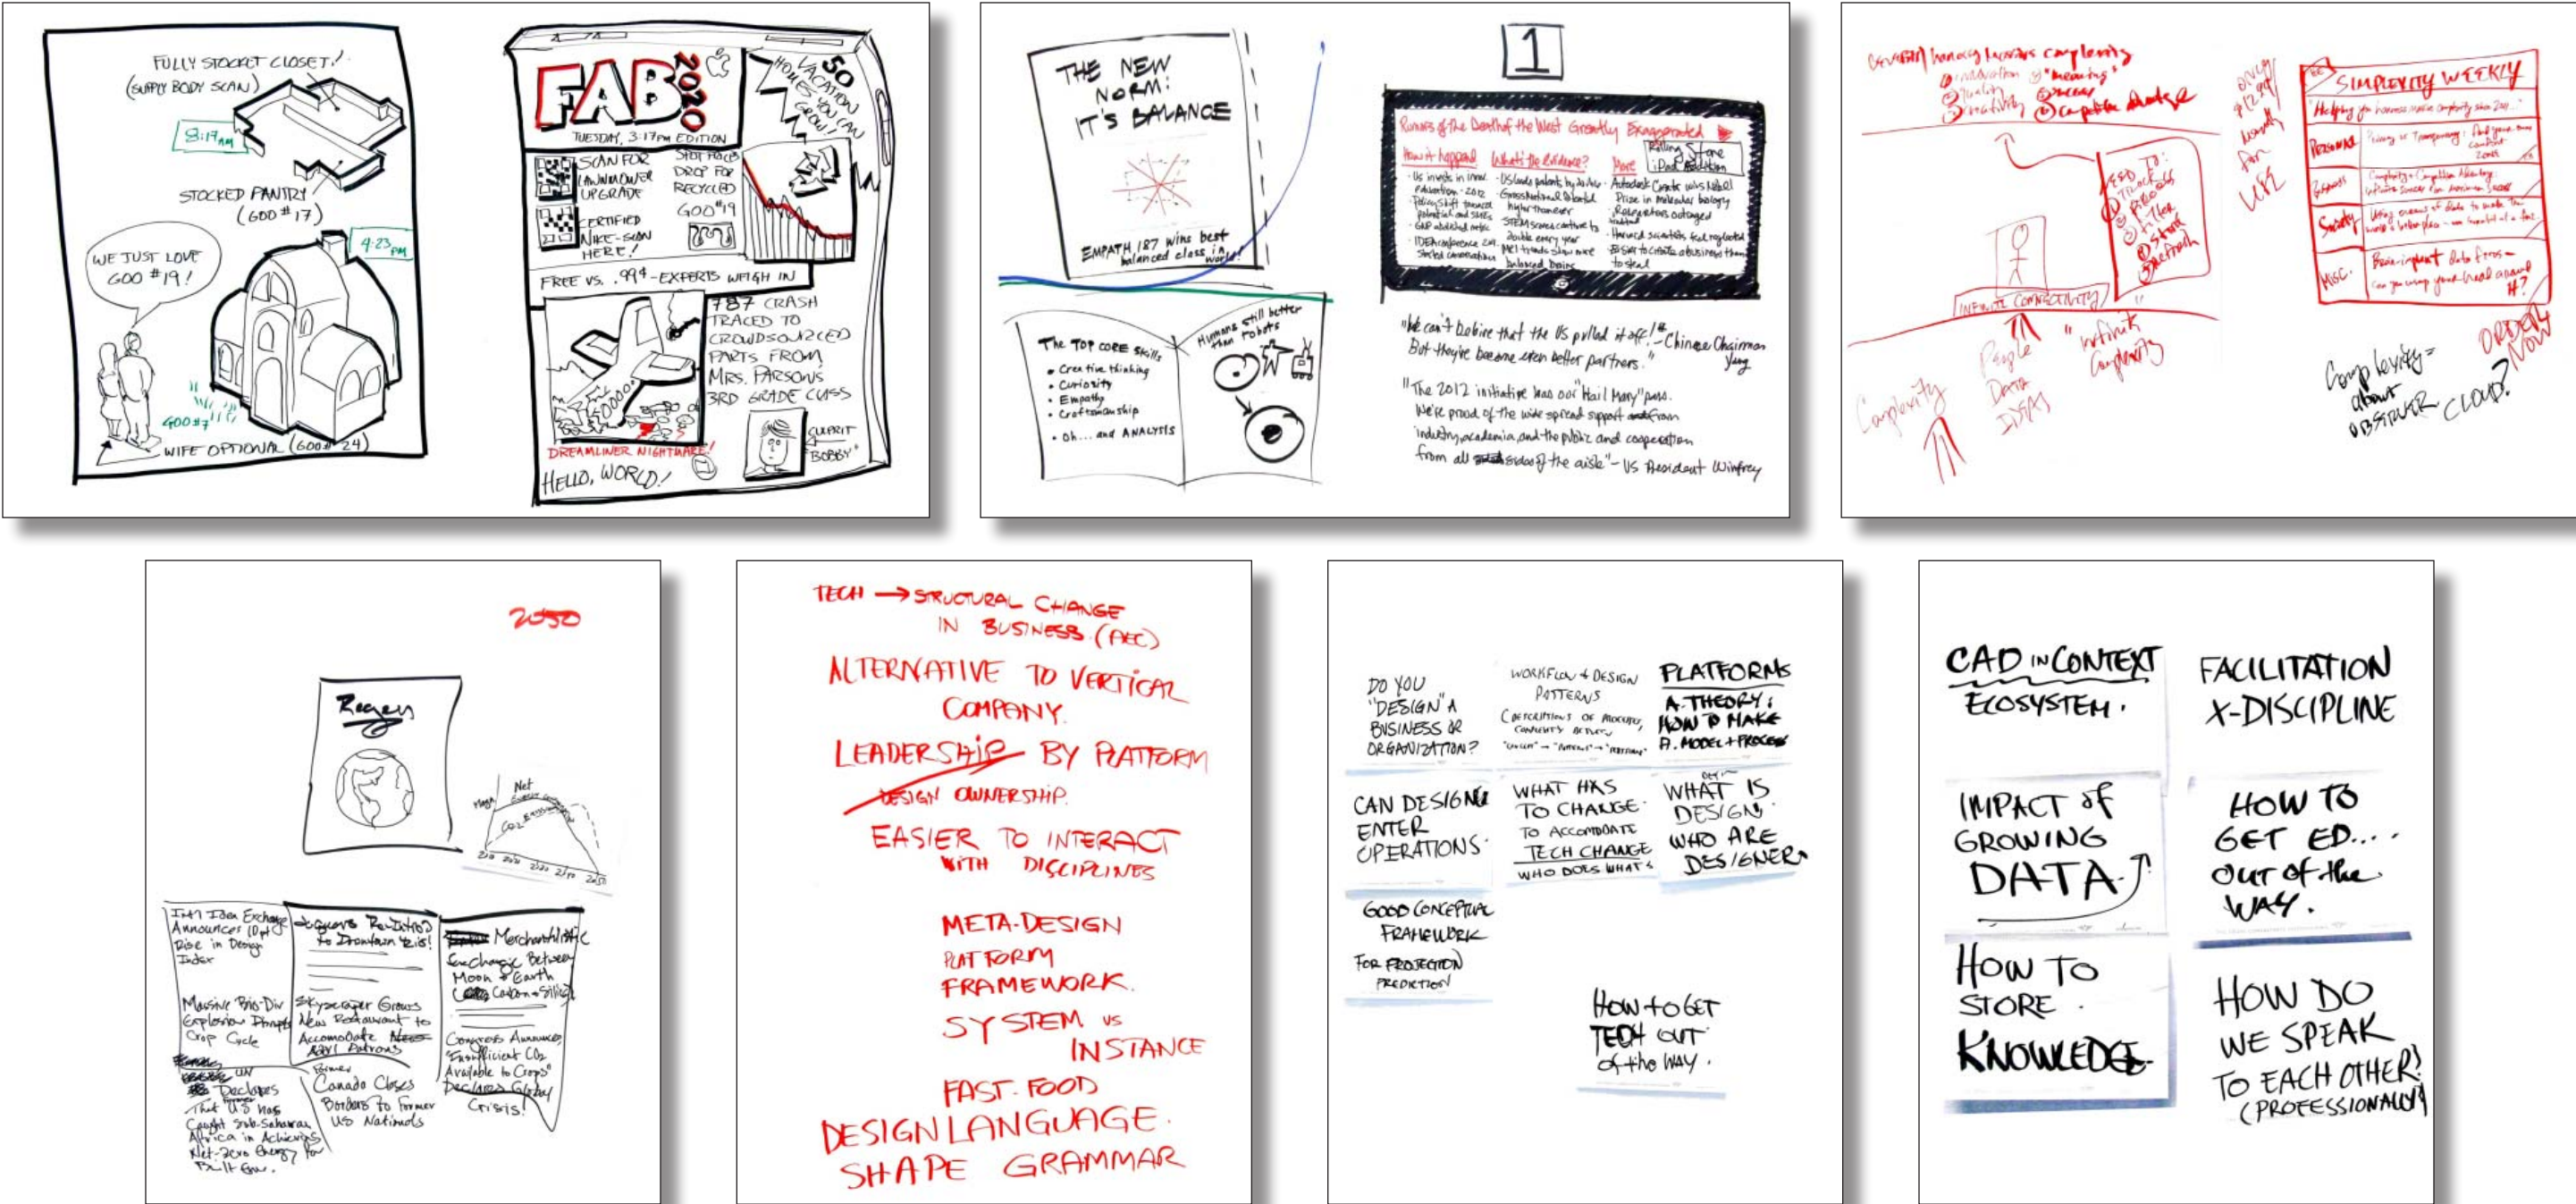 FULLY STOCKET CLOSET!
(SUPPLY BODY SCAN)
8:17am
STOCKED PANTRY
(GOO #17)
4:23pm
WE JUST LOVE
GOO #19!
GOO#7
WIFE OPTIONAL (GOO# 24)
FAB
2020
TUESDAY, 3:17pm EDITION
50
VACATION
HOMES YOU CAN
GROW!
SCAN FOR
LAWNMOWER
UPGRADE
CERTIFIED
NIKE-SCAN
HERE!
SPOT PRICES
DROP FOR
RECYCLED
GOO#19
FREE VS. .99¢ - EXPERTS WEIGH IN
787 CRASH
TRACED TO
CROWDSOURCED
PARTS FROM
MRS. PARSONS
3RD GRADE CLASS
DREAMLINER NIGHTMARE!
HELLO, WORLD!
CULPRIT
"BOBBY"
THE NEW
NORM:
IT'S BALANCE
EMPATH 187 wins best
balanced class in
world!
The TOP CORE Skills
• Creative thinking
• Curiosity
• Empathy
• Craftsmanship
• Oh... and ANALYSIS
Humans still better
than robots
1
Rumors of the Death of the West Greatly Exaggerated
Rolling Stone
iPad Edition
How it happened
• US invests in innov.
education - 2012
• Policy shift toward
potential and skills
• IDEA conference
started conversation
What's the Evidence?
• US leads patents by double
• Gross National Potential
higher than ever
• STEM scores continue to
double every year
• MRI trends show more
balanced brains
More
• Autodesk Creates wins Nobel
Prize in molecular biology
• Researchers outraged
• Harvard scientists feel neglected
• Easier to create a business than
to steal
"We can't believe that the US pulled it off!
But they've become even better partners." - Chinese Chairman
Yang
"The 2012 initiative was our "Hail Mary" pass.
We're proud of the wide spread support from
industry, academia, and the public and cooperation
from all sides of the aisle" - US President Winfrey
harness complexity
① innovation ④ "meaning"
② quality
③ creativity
ONLY
for
USE
SIMPLEXITY WEEKLY
"Helping you harness complexity since
PERSONAL
Privacy vs Transparency: find your own
comfort
zone
Business
Society
Using oceans of data to make the
world a better place
MISC.
Brain-implant data feeds -
Can you wrap your head around
it?
TO:
③ Filter
④ Store
⑤ Refresh
INFINITE CONNECTIVITY
Complexity
People
DATA
IDEAS
"infinite
Complexity"
Complexity =
about
OBSERVER
CLOUD?
ORDER
NOW
2050
Regen
Net
CO2 Emissions
Int'l Idea Exchange
Announces 10pt
Rise in Design
Index
Massive Bio-Div
Explosion Disrupts
Crop Cycle
UN
Declares
That Former US has
Caught Sub-Saharan
Africa in Achieving
Net-zero Energy for
Built Env.
Jaguars Re-Introd
to Downtown
Skyscraper Grows
New Restaurant to
Accomodate
Add'l Patrons
Former
Canada Closes
Borders to Former
US Nationals
Merchantilistic
Exchange Between
Moon & Earth
Carbon
Congress Announces
"Insufficient CO2
Available to Crops"
Declares Global
Crisis!
TECH → STRUCTURAL CHANGE
IN BUSINESS (AEC)
ALTERNATIVE TO VERTICAL
COMPANY.
LEADERSHIP BY PLATFORM
DESIGN OWNERSHIP.
EASIER TO INTERACT
WITH DISCIPLINES
META-DESIGN
PLATFORM
FRAMEWORK.
SYSTEM vs
INSTANCE
FAST-FOOD
DESIGN LANGUAGE.
SHAPE GRAMMAR
DO YOU
"DESIGN" A
BUSINESS OR
ORGANIZATION?
WORKFLOW & DESIGN
PATTERNS
(DESCRIPTIONS OF PROCESSES,
PLATFORMS
A. THEORY:
HOW TO MAKE
A. MODEL + PROCESS
CAN DESIGN
ENTER
OPERATIONS.
WHAT HAS
TO CHANGE.
TO ACCOMODATE
TECH CHANGE
WHO DOES WHAT?
WHAT IS
DESIGN.
WHO ARE
DESIGNERS
GOOD CONCEPTUAL
FRAMEWORK
FOR PROJECTION
PREDICTION
HOW to GET
TECH OUT
of the WAY.
CAD IN CONTEXT
ECOSYSTEM.
FACILITATION
X-DISCIPLINE
IMPACT of
GROWING
DATA.
HOW TO
GET ED....
OUT OF the
WAY.
HOW TO
STORE.
KNOWLEDGE.
HOW DO
WE SPEAK
TO EACH OTHER?
(PROFESSIONALLY)